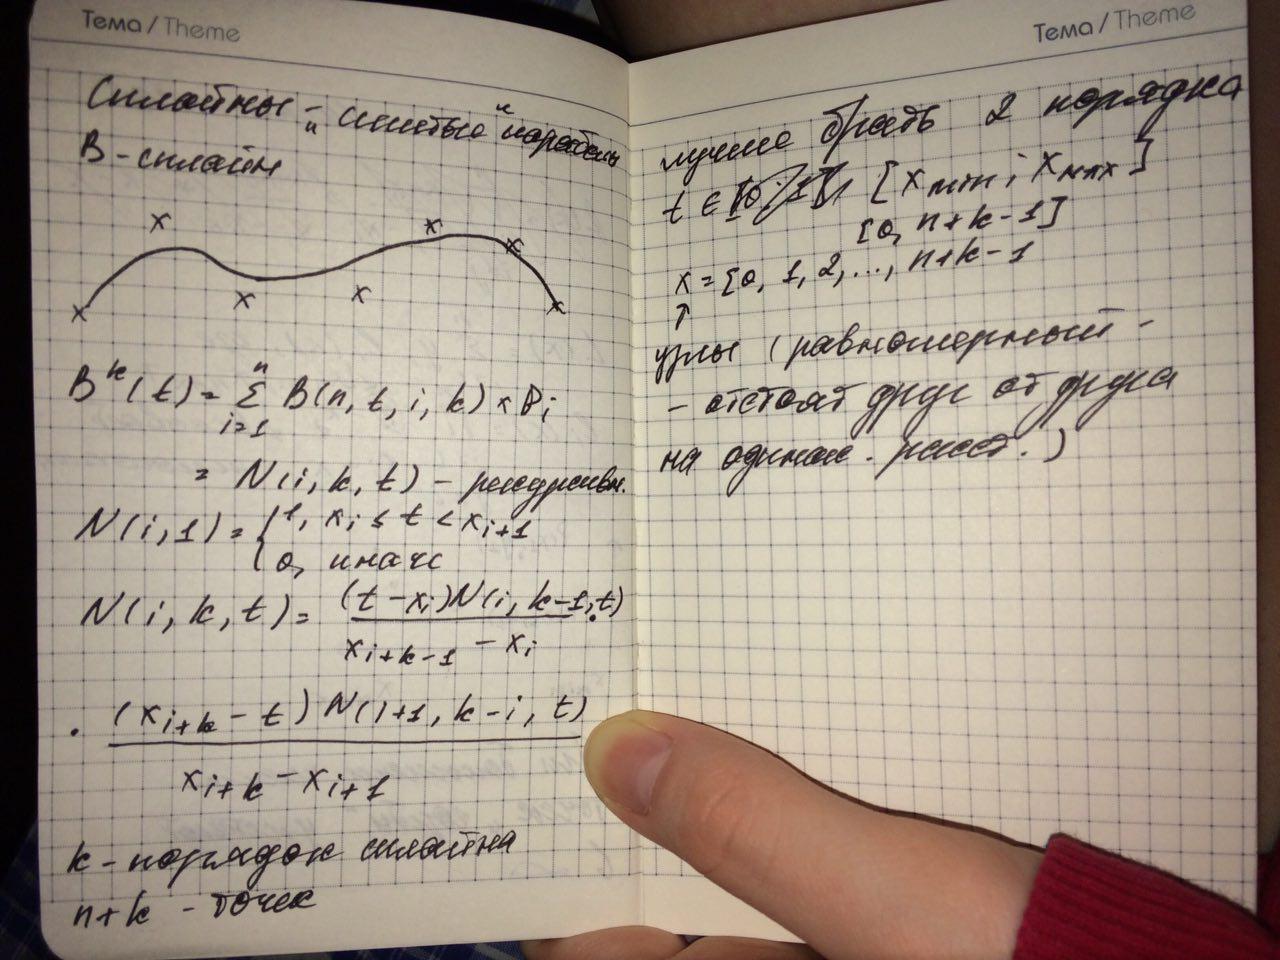 Тема / Theme
Сплайны - "сшитые" параболы
B - сплайн
x x x x x x x
B^k(t) = Σ_{i=1}^{n} B(n, t, i, k) × P_i
= N(i, k, t) - рекурсивн.
N(i, 1) = { 1, x_i ≤ t < x_{i+1}
0, иначе
N(i, k, t) = (t - x_i) N(i, k-1, t) .
x_{i+k-1} - x_i
. (x_{i+k} - t) N(i+1, k-i, t)
x_{i+k} - x_{i+1}
k - порядок сплайна
n+k - точек
Тема / Theme
лучше брать 2 порядка
t ∈ [0; 1] [x_min ; x_max]
[0, n+k-1]
x = [0, 1, 2, ..., n+k-1
↑
узлы (равномерный -
- отстоят друг от друга
на одинак. расст.)